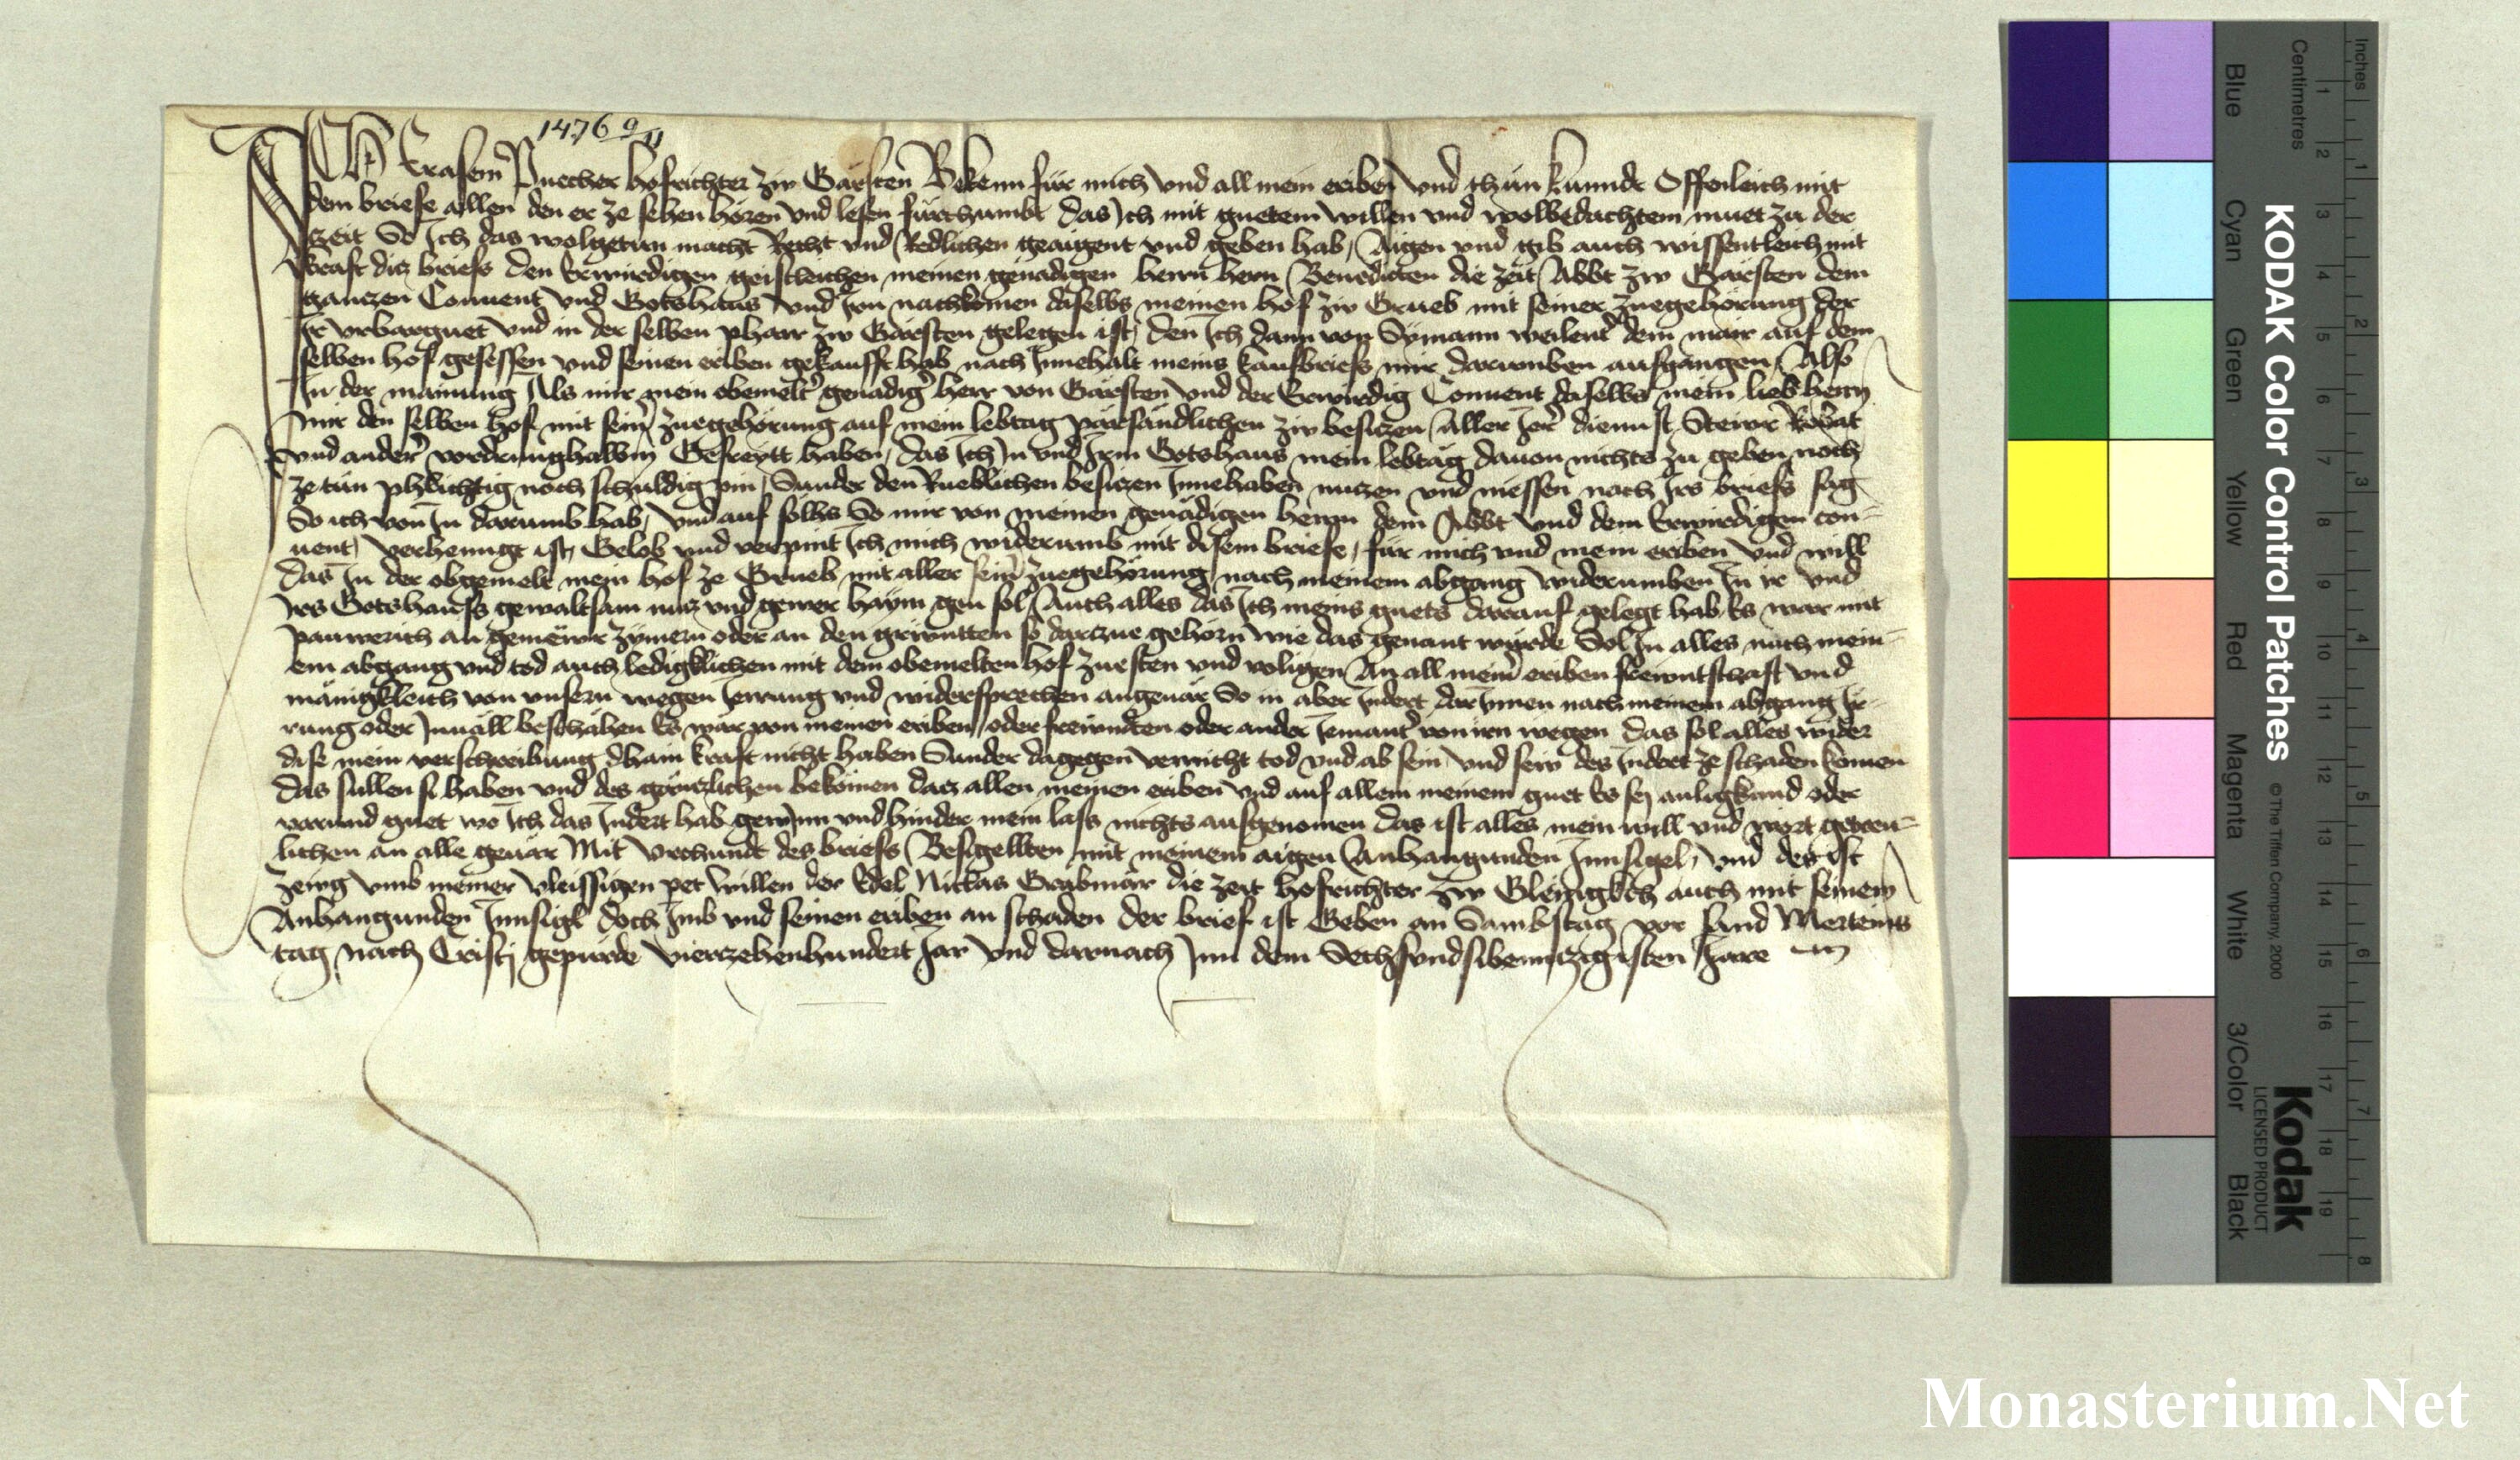 1476 9/11
Ich Erasem Puecher hofrichter zw Gärsten Bekenn für mich vnd all mein eriben vnd thun kunndt Offenleich mit
dem briefe allen den er ze sehen hören vnd lesen fürchumbt das Ich mit guetem willen vnd wolbedachtem muet zu der
Zeit So Ich das wolgetun macht Recht vnd Redlichen geaigent vnd geben hab, Aigen vnd gib auch wissentleich mit
kraft ditz briefs den Erwirdigen geistleichen meinen genädigen herrn hern Benedicten die zeit Abbt zw Gärsten dem
ganczen Conuent vnd Gotshaus vnd Irn nachkomen daselbs meinen hof zw Grueb mit seiner zuegehörung der
Ir vrbarguet vnd in der selben pharr zw Gärsten gelegen ist, den Ich dann von Symann weilent dem mair auf dem
selben hof gesessen vnd seinen eriben gekaufft hab nach Innehalt meins kaufbriefs mir darumben ausgangen, Also
In der mainung Als mir mein obemelt genädig herr von Gärsten vnd der Erwirdig Conuent daselbs mein lieb herrn
mir den selben hof mit sein zuegehörung auf mein lebtag pärsändlichen zw besiczen aller Ier dienst Stewr Robat
vnd ander vordrunghalbm Gefreytt haben, das Ich In vnd Irm Gotshaus mein lebtäg dauon nichts zu geben noch
ze tun phlichtig noch schuldig pin, Sunder den Rueblichen besiczen Innehaben nuczen vnd niessen nach Irs briefs sag
So ich von In darumb hab, vnd auf solhs So mir von meinen genädigen herrn dem Abbt vnd dem Erwirdigen con-
uent, verhenngt ist, Gelob vnd verpint Ich mich widerumb mit disem briefe, für mich vnd mein eriben vnd will
das In der obgemelt mein hof ze Grueb mit aller sein zuegehörung nach meinem abgang widerumben In ir vnd
Irs Gotshaufs gewaltsam nucz vnd gewer haym gen sol, Auch alles das Ich meins guets darauf gelegt hab Es wär mit
pauwerich an gemëwr zymern oder an den grwntten so darczue gehörn wie das genant würde Sol In alles nach mein-
em abgang vnd tod auch ledigklichen mit dem obemelten hof zuesten vnd voligen An all mein eriben frewntschaft vnd
mänigkleich von vnsern wegen Irrung vnd widersprechen angeuär So in aber Indert dar Innen nach meinem abgang Ir-
rung oder Inuäll beschähen Es wär von meinen eriben, oder frewndten oder ander Iemant von irn wegen das sol alles wider
dise mein verschreibung dhain kraft nicht haben Sunder dagegen vernicht tod vnd ab sein, vnd sew des Indert ze schaden komen
das sullen si haben vnd des gänczlichen bekömen dacz allen meinen eriben vnd auf allem meinem guet Es sej anligkund oder
varund guet wo Ich das Indert hab gewinn vnd hinder mein lass nichts ausgenomen das ist alles mein will vnd wort getreu-
lichen an alle geuär Mit vrchundt des briefs Besigellten mit meinem aigen Anhangunden Innsigel, vnd des ist
zewg vmb meiner vleissigen pet willen der Edel Niclas Grabmär die zeit hofrichter zw Glewnigkch auch mit seinem
Anhangunden Innsigl doch Imb vnd seinen eriben an schaden der brief ist Geben an Sambstag vor sand Merteins
tag nach Cristj gepürde vierzehenhundert Jar vnd darnach Inn dem Sechsvndsibenntzigisten Jare
KODAK Color Control Patches
© The Tiffen Company, 2000
Kodak
LICENSED PRODUCT
Inches
Centimetres
1 2 3 4 5 6 7 8 9 10 11 12 13 14 15 16 17 18 19
1 2 3 4 5 6 7 8
Blue
Cyan
Green
Yellow
Red
Magenta
White
3/Color
Black
Monasterium.Net